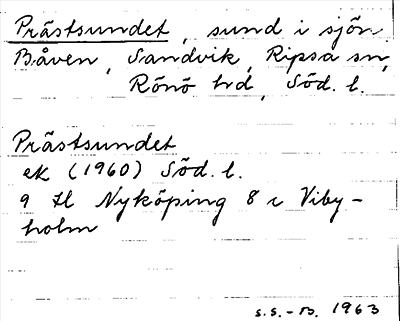 Prästsundet, sund i sjön
Båven, Sandvik, Ripsa sn,
Rönö hd, Söd. l.
Prästsundet
ek (1960) Söd. l.
9 H Nyköping 8 c Viby-
holm
s.s.-m. 1963